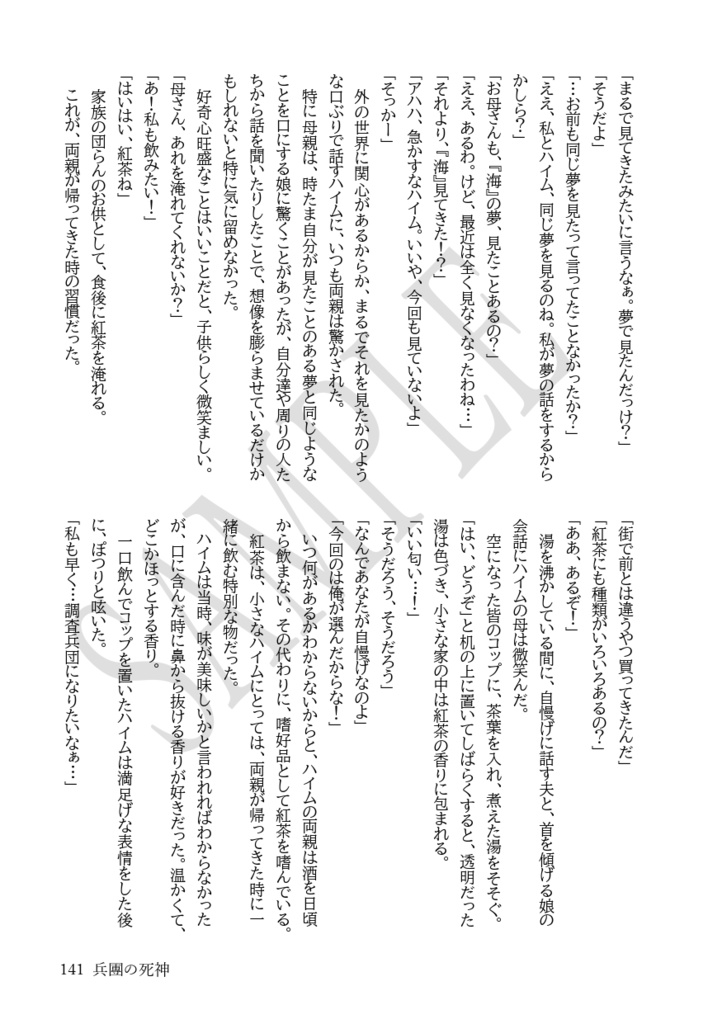 「まるで見てきたみたいに言うなぁ。夢で見たんだっけ?」
「そうだよ」
「…お前も同じ夢を見たって言ってたことなかったか?」
「ええ、私とハイム、同じ夢を見るのね。私が夢の話をするから
かしら?」
「お母さんも、『海』の夢、見たことあるの?」
「ええ、あるわ。けど、最近は全く見なくなったわね…」
「それより、『海』見てきた!?」
「アハハ、急かすなハイム。いいや、今回も見ていないよ」
「そっかー」
外の世界に関心があるからか、まるでそれを見たかのよう
な口ぶりで話すハイムに、いつも両親は驚かされた。
特に母親は、時たま自分が見たことのある夢と同じような
ことを口にする娘に驚くことがあったが、自分達や周りの人た
ちから話を聞いたりしたことで、想像を膨らませているだけか
もしれないと特に気に留めなかった。
好奇心旺盛なことはいいことだと、子供らしく微笑ましい。
「母さん、あれを淹れてくれないか?」
「あ!私も飲みたい!」
「はいはい、紅茶ね」
家族の団らんのお供として、食後に紅茶を淹れる。
これが、両親が帰ってきた時の習慣だった。
「街で前とは違うやつ買ってきたんだ」
「紅茶にも種類がいろいろあるの?」
「ああ、あるぞ!」
湯を沸かしている間に、自慢げに話す夫と、首を傾げる娘の
会話にハイムの母は微笑んだ。
空になった皆のコップに、茶葉を入れ、煮えた湯をそそぐ。
「はい、どうぞ」と机の上に置いてしばらくすると、透明だった
湯は色づき、小さな家の中は紅茶の香りに包まれる。
「いい匂い…!」
「そうだろう、そうだろう」
「なんであなたが自慢げなのよ」
「今回のは俺が選んだからな!」
いつ何があるかわからないからと、ハイムの両親は酒を日頃
から飲まない。その代わりに、嗜好品として紅茶を嗜んでいる。
紅茶は、小さなハイムにとっては、両親が帰ってきた時に一
緒に飲む特別な物だった。
ハイムは当時、味が美味しいかと言われればわからなかった
が、口に含んだ時に鼻から抜ける香りが好きだった。温かくて、
どこかほっとする香り。
一口飲んでコップを置いたハイムは満足げな表情をした後
に、ぽつりと呟いた。
「私も早く…調査兵団になりたいなぁ…」
141 兵團の死神
SAMPLE